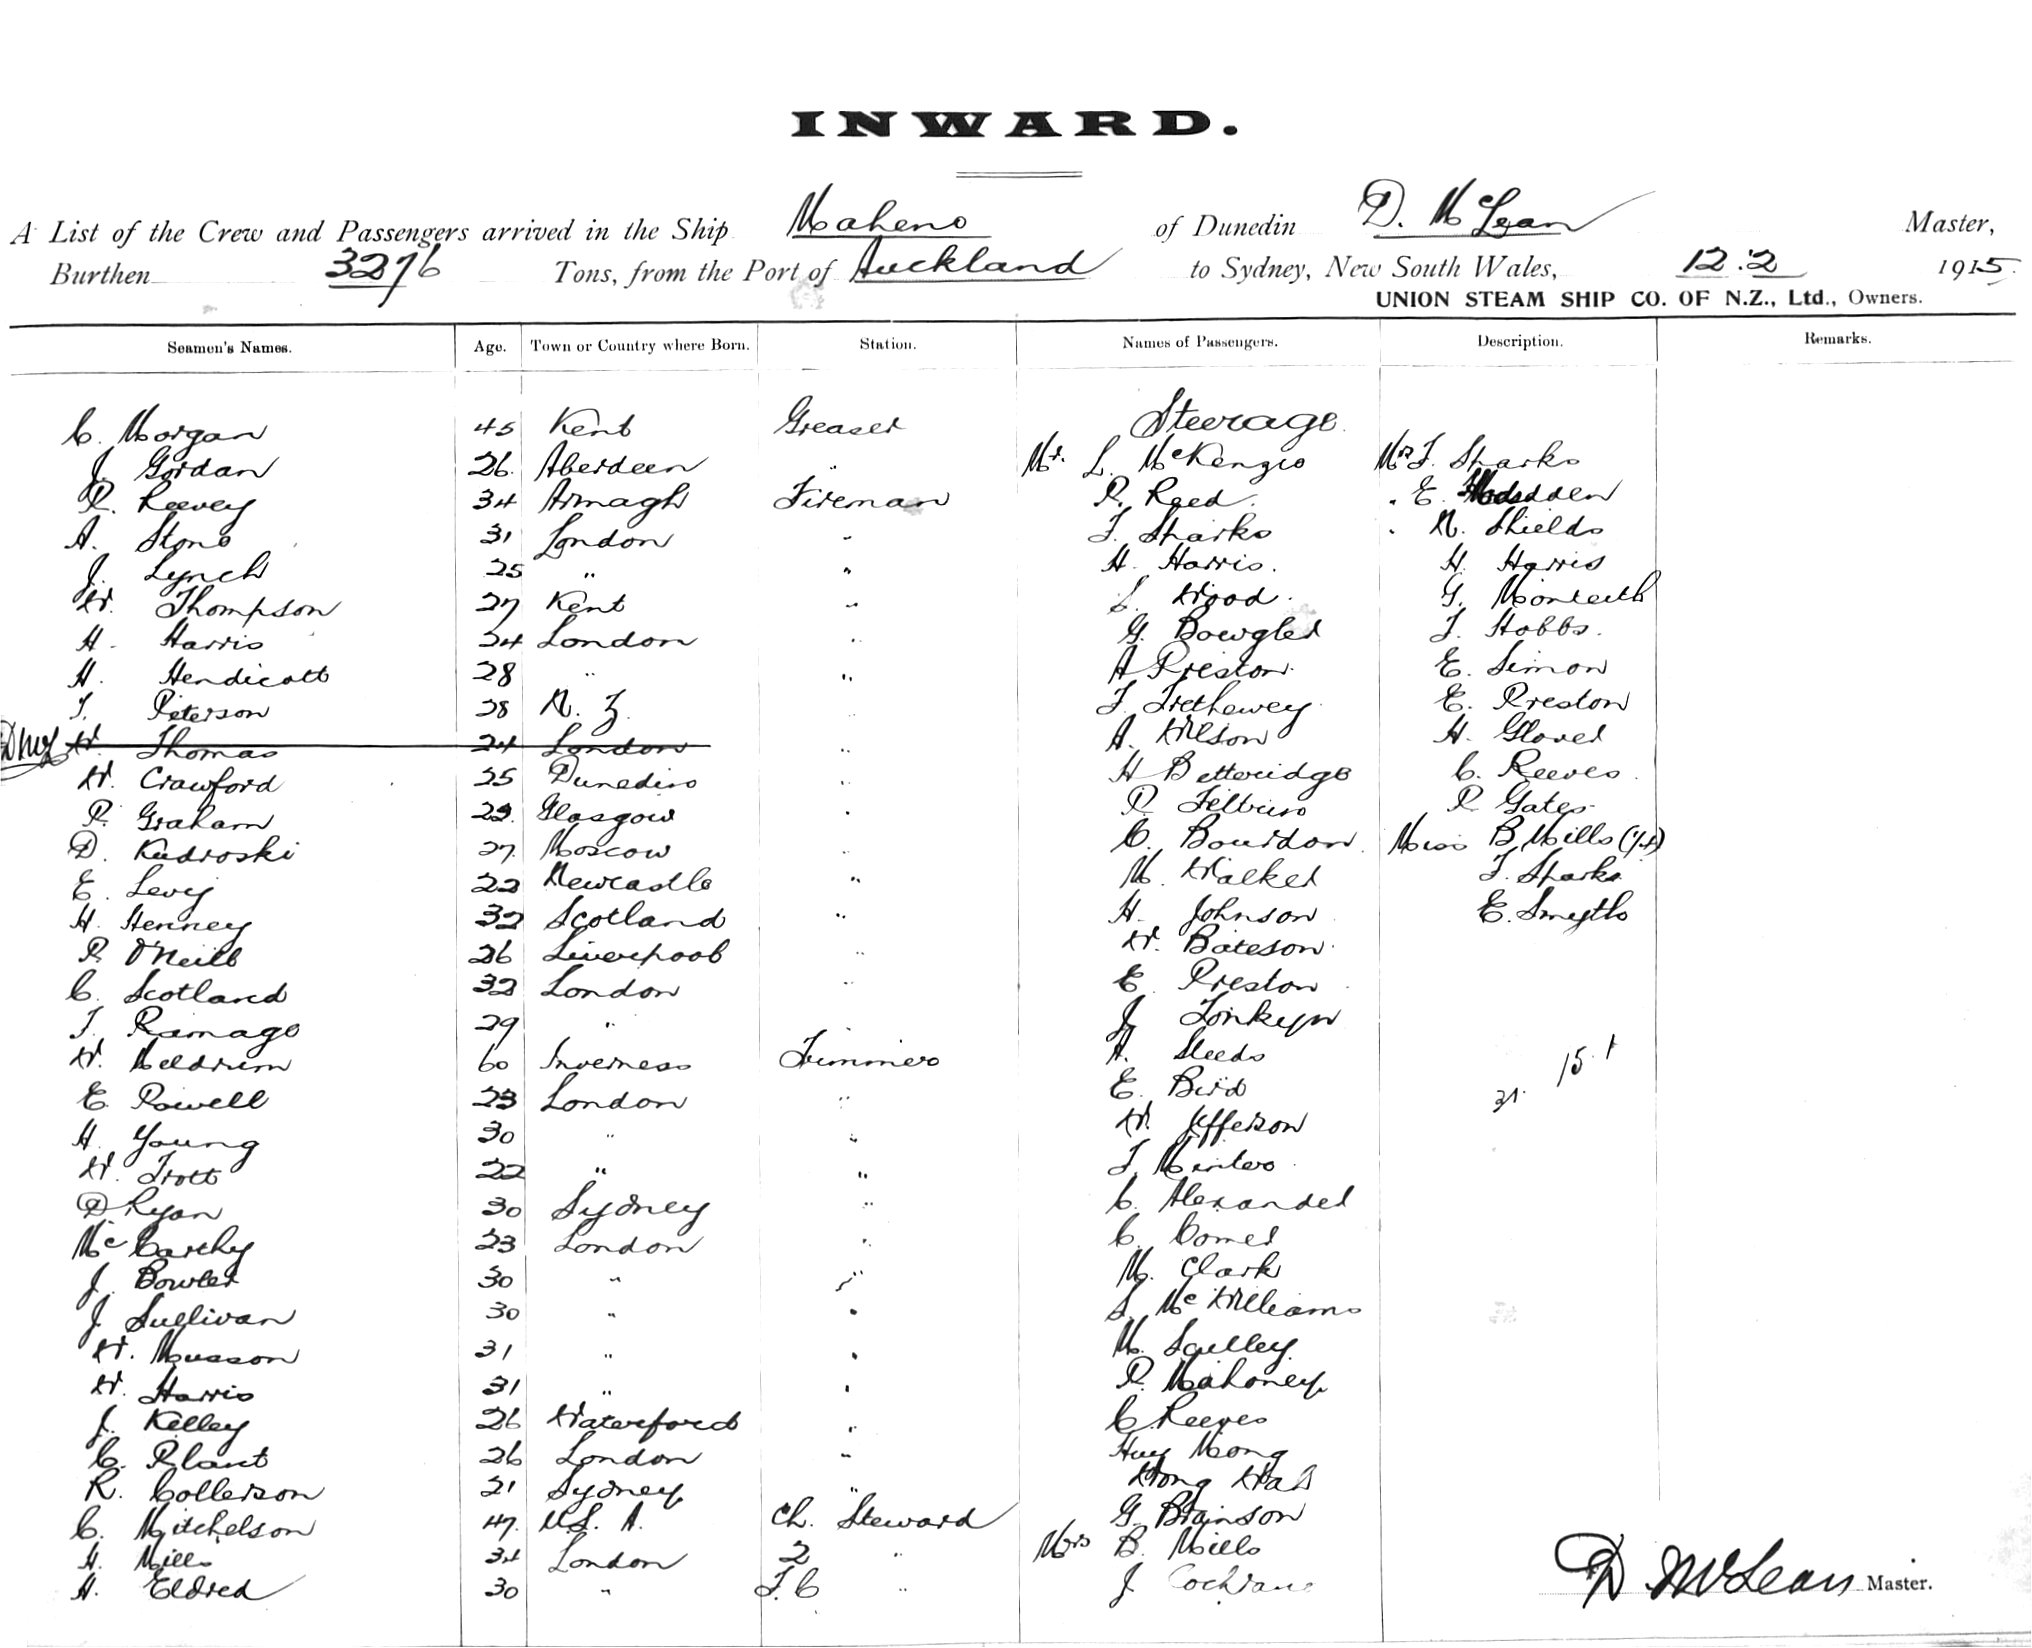 INWARD.
A List of the Crew and Passengers arrived in the Ship Maheno of Dunedin D. McLean Master,
Burthen 3276 Tons, from the Port of Auckland to Sydney, New South Wales, 12.2 1915.
UNION STEAM SHIP CO. OF N.Z., Ltd., Owners.
Seamen's Names. Age. Town or Country where Born. Station. Names of Passengers. Description. Remarks.
C. Morgan 45 Kent Greaser Steerage.
J. Gordan 26. Aberdeen " Mr. L. McKenzie Mrs F. Sparks
R. Reevey 34 Armagh Fireman P. Reed. " E.
A. Stone 31 London " F. Sparks " N. Shields
J. Lynch 25 " " H. Harris. H. Harris
W. Thompson 27 Kent " Wood. G. Monteith
H. Harris 24 London " G. Bowgler T. Hobbs.
H. Hendicott 28 " " A Preston. E. Simon
T. Peterson 28 N. Z. " F. Trethewey E. Preston
DMcL W. Thomas 24 London " A. Wilson H. Glover
W. Crawford 25 Dunedin " H Betteridge C. Reeves.
P. Graham 23. Glasgow " P. C. Gates
D. Kudroski 27. Moscow C. Bourdon. Miss B. Mills
E. Levy 22 Newcastle " M. Walker F. Sparks
H. Henney 32 Scotland " H. Johnson E. Smyth
P. O'Neill 26 Liverpool " W. Bateson.
C. Scotland 32 London " E. Preston
T. Ramage 29 " J. Tonkyn
W. Meldrum 60 Inverness Trimmer A. Steeds 15.1
E. Powell 23 London " E. Bird 31.
H. Young 30 " " W. Jefferson
W. Trott 22 " " F. Minter
D Ryan 30 Sydney " C. Alexander
McCarthy 23 London " C. Comer
J. Bowler 30 " " M. Clark
J Sullivan 30 " " S. McWilliams
W. Musson 31 " " M. Sculley
W. Harris 31 " " P. Mahoney
J. Kelley 26 Waterford " C Reeves
C. Plant 26 London " Huy Mong
R. Collerson 21 Sydney " Wong Wah
C. Mitchelson 47. U.S.A. Ch. Steward G. Brainson
H. Mills 34 London 2 " Mrs B. Mills
H. Eldred 30 " F.C " J Cochrane D McLean Master.